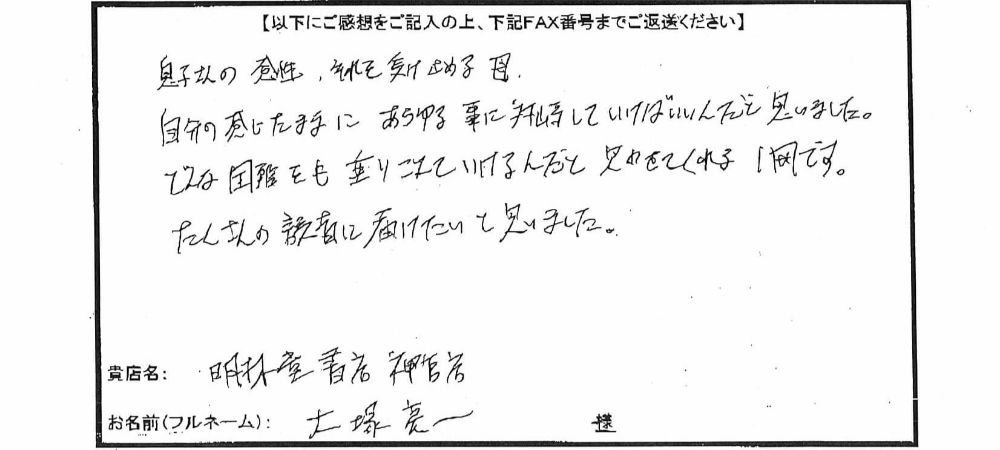 【以下にご感想をご記入の上、下記FAX番号までご返送ください】
息子さんの感性、それを受け止める母。
自分の感じたままに あらゆる事に対峙していけばいいんだと思いました。
どんな困難をも乗りこえていけるんだと思わせてくれる1冊です。
たくさんの読者に届けたいと思いました。
貴店名: 明林堂書店 神宮店
お名前(フルネーム): 大塚亮一 様